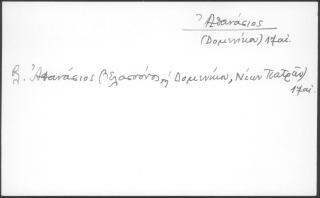 Ἀθανάσιος
(Δομενίκου) 17 αἰ.
β. Ἀθανάσιος (Ἐλασσόνος ἢ Δομενίκου, Νέων Πατρῶν)
17 αἰ.